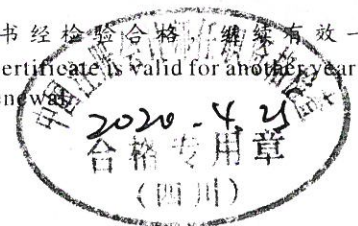 书经检验合格，继续有效一
ertificate is valid for another year
enewal
2020.4.25
合格专用章
（四川）